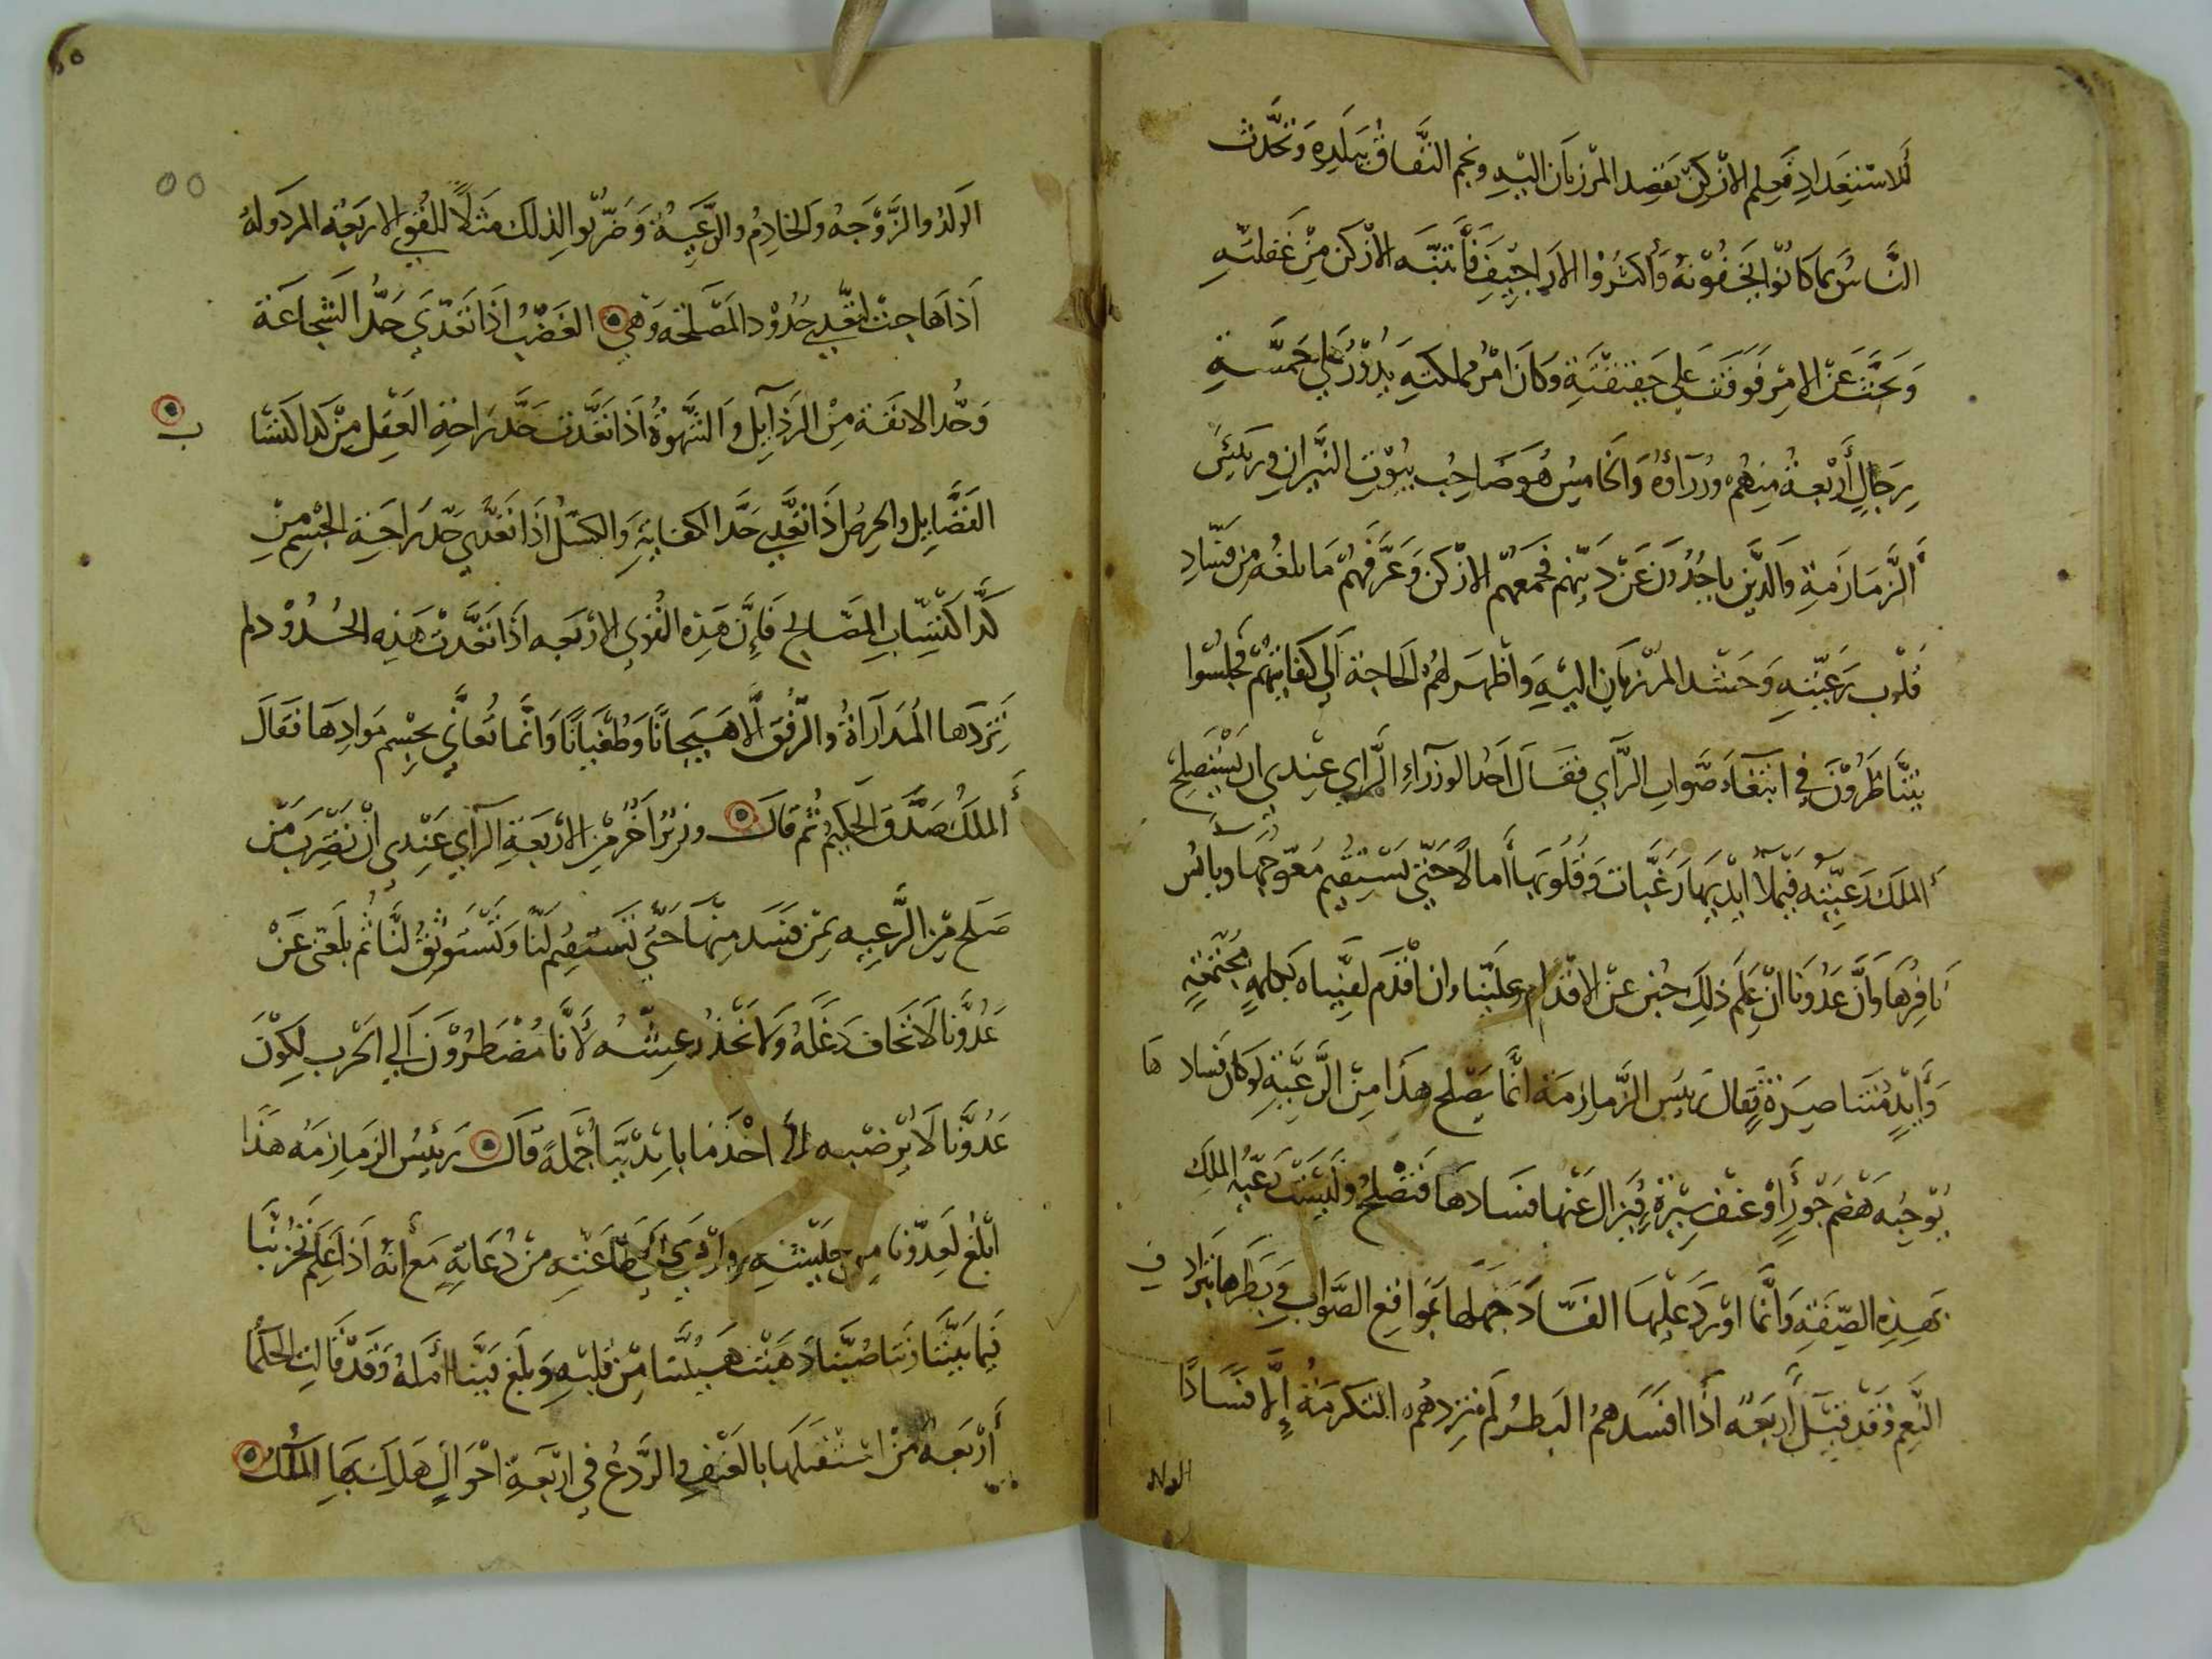 للاستعداد فعلم الازدكن بقصد المرزبان اليه ونجم النفاق ببلده وتحدث
الناس بما كانوا يخفونه وأكثروا الاراجيف فانتبه الازدكن من غفلته
وبحث عن الامر فوقف على حقيقته وكان امر مملكته يدور على خمسة
رجال أربعة منهم وزراؤه والخامس هو صاحب بيوت النيران ورئيس
الزمازمة والذين ياخذون عن دينهم فجمعهم الازدكن وعرفهم ما بلغه من فساد
قلوب رعيته وحشد المرزبان اليه واظهر لهم الحاجة الى كفايتهم فجلسوا
يتناظرون في ابتغاء صواب الرأي فقال احد الوزراء الراي عندي ان يستصلح
الملك رعيته فيملأ ايديها رغبات وقلوبها أمالا حتى يستقيم معوجها ويانس
نافرها وأن عدونا ان علم ذلك جبن عن الاقدام علينا وان اقدم لقيناه بكلمة مجتمعة
وأيد متناصرة فقال رئيس الزمازمة انما يصلح هذا من الرعية لو كان فسادها
يوجبه هضم جور أو عنف سيرة فيزال عنها فسادها فتصلح وليست رعية الملك
بهذه الصفة وانما اورد عليها الفساد جهلها بمواقع الصواب في بطرها بترادف
النعم وقد قيل أربعة اذا افسدهم البطر لم تزدهم التكرمة إلا فسادا
الولد
الولد والزوجه والخادم والرعية وضربوا لذلك مثلا للقوى الاربعة المردوله
اذا هاجت لتعدي حدود المصلحة وهي الغضب اذا تعدى حد الشجاعة
وحد الانفة من الرذايل والشهوة اذا تعدت حد راحة العقل من كد اكتسا
ب
الفضايل والحرص اذا تعدي حد الكفاية والكسل اذا تعدي حد راحة الجسم من
كد اكتساب المصالح فإن هذه القوى الاربعه اذا تعدت هذه الحدود لم
تزدها المداراة والرفق الا هيجانا وطغيانا وانما تعانى بحسم موادها فقال
الملك صدق الحكيم ثم قال وزير اخر من الاربعة الراي عندى ان نضرب من
صلح من الرعيه بمن فسد منها حتى تستقيم لنا وتستوثق لنا ثم نلقى عن
عدونا لا نخاف دغله ولا نحذر عيشه لأنا مضطرون الي الحرب لكون
عدونا لا يرضيه الا اخذ ما بايدينا جملة قال رئيس الزمازمه هذا
ابلغ لعدونا من جليشه وادعى الى طاعته من دعاته مع أنه اذا علم تحزبنا
فيما بيننا وتناصبنا ذهبت هيبتنا من قلبه وبلغ فينا أمله وقد قالت الحكما
أربعة من استقبلها بالعنف والردع في اربعة احوال هلك بها الملك
٥٥